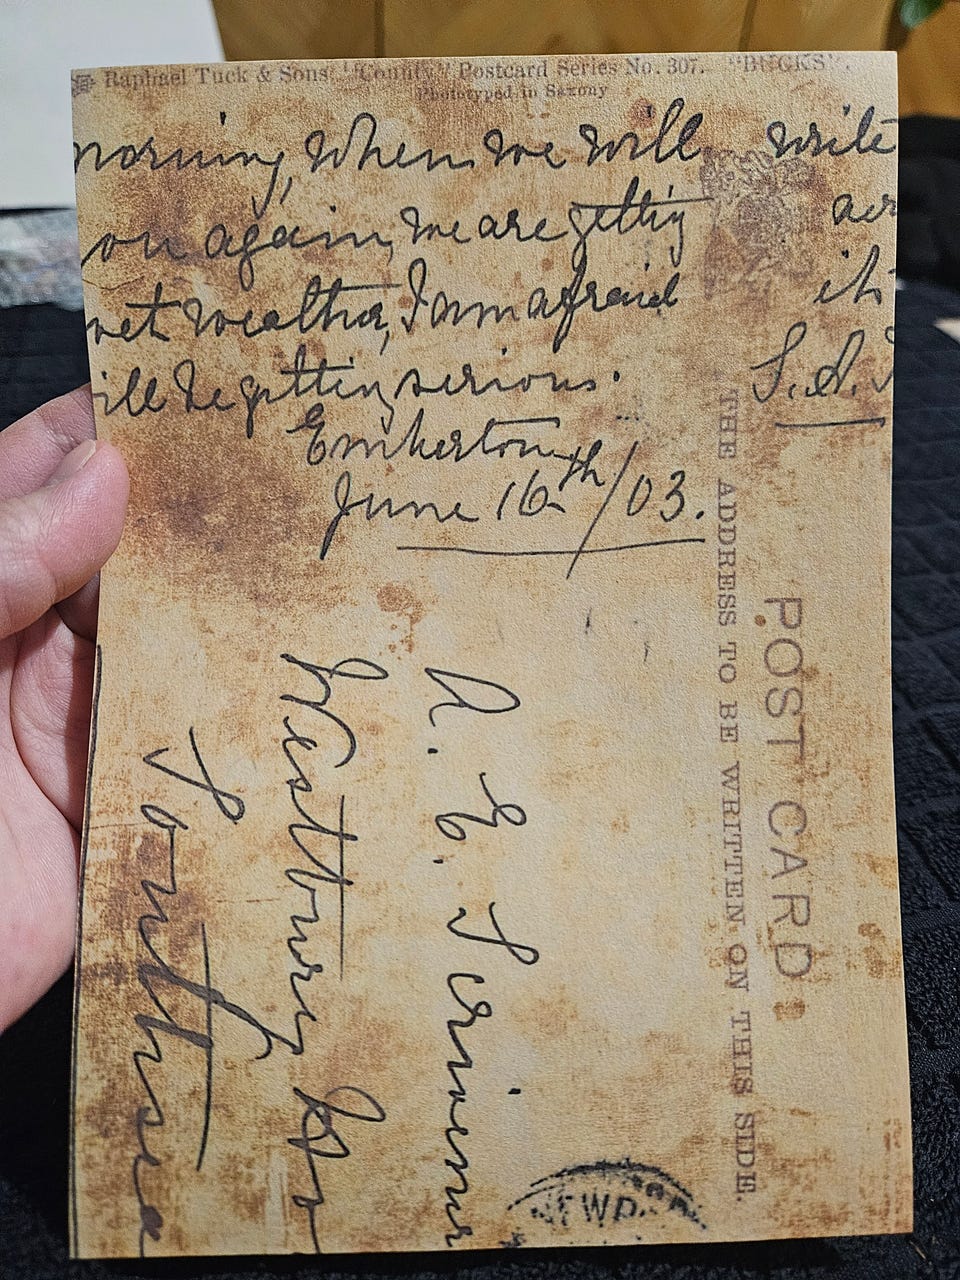 Raphael Tuck & Sons' "County" Postcard Series No. 307. "BUCKS".
Phototyped in Saxony
morning, when we will write
ou again, we are getting
wet weather, I am afraid it
ill be getting serious. S.A.
Emberton
June 16th/03.
POST CARD
THE ADDRESS TO BE WRITTEN ON THIS SIDE.
A. E. Scrivener
Westbury
Southsea
NEWP